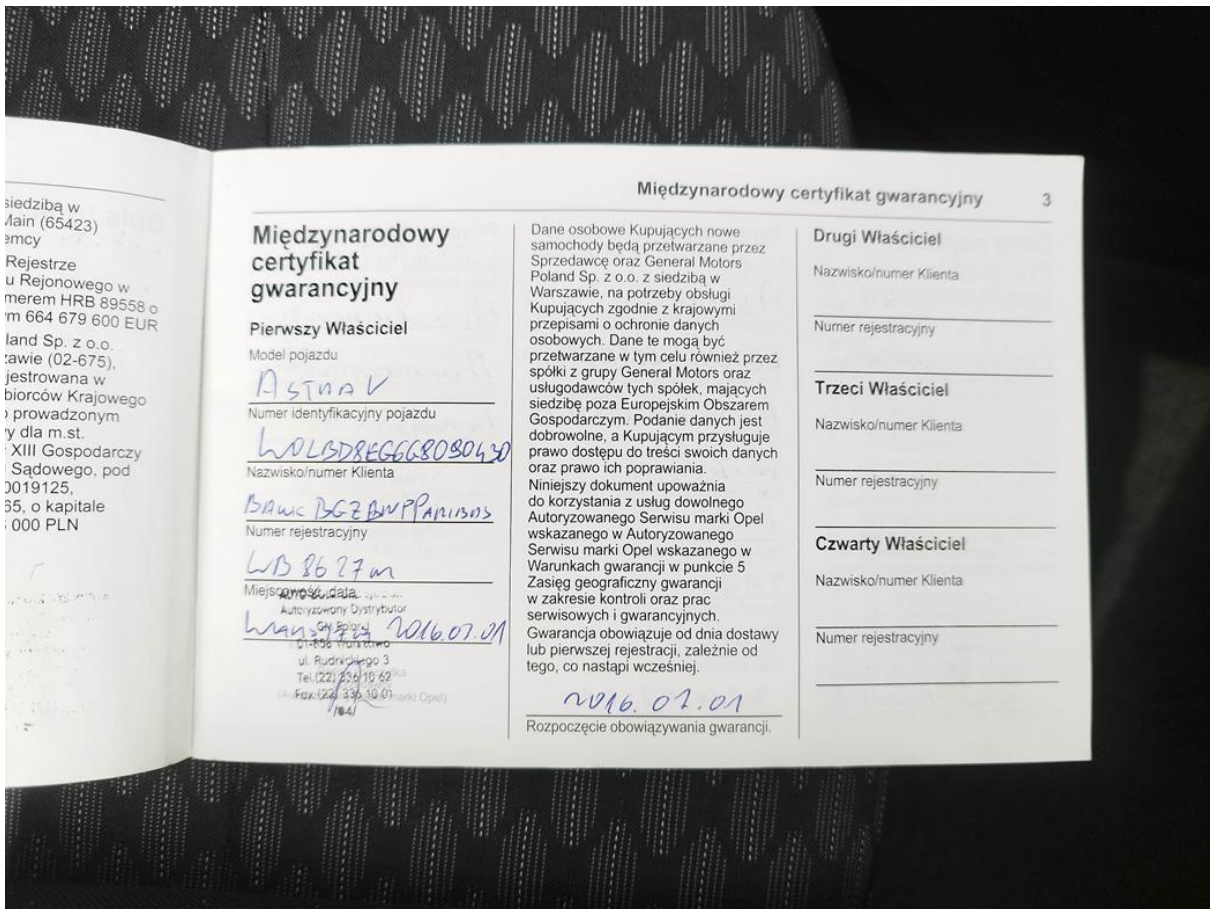 siedzibą w
Main (65423)
emcy
Rejestrze
u Rejonowego w
merem HRB 89558 o
ym 664 679 600 EUR
land Sp. z o.o.
zawie (02-675),
jestrowana w
biorców Krajowego
o prowadzonym
y dla m.st.
XIII Gospodarczy
Sądowego, pod
0019125,
65, o kapitale
000 PLN
Międzynarodowy certyfikat gwarancyjny 3
Międzynarodowy
certyfikat
gwarancyjny
Pierwszy Właściciel
Model pojazdu
ASTRA V
Numer identyfikacyjny pojazdu
W0LBD8EG6G8090430
Nazwisko/numer Klienta
BANK BGZ BNP PARIBAS
Numer rejestracyjny
WB 8627M
Miejscowość, data
Autoryzowany Dystrybutor
GM Poland
Warszawa 2016.07.01
ul. Rudnickiego 3
Tel. (22) 336 10 62
Fax (22) 336 10 01
marki Opel)
/04/
Dane osobowe Kupujących nowe
samochody będą przetwarzane przez
Sprzedawcę oraz General Motors
Poland Sp. z o.o. z siedzibą w
Warszawie, na potrzeby obsługi
Kupujących zgodnie z krajowymi
przepisami o ochronie danych
osobowych. Dane te mogą być
przetwarzane w tym celu również przez
spółki z grupy General Motors oraz
usługodawców tych spółek, mających
siedzibę poza Europejskim Obszarem
Gospodarczym. Podanie danych jest
dobrowolne, a Kupującym przysługuje
prawo dostępu do treści swoich danych
oraz prawo ich poprawiania.
Niniejszy dokument upoważnia
do korzystania z usług dowolnego
Autoryzowanego Serwisu marki Opel
wskazanego w Autoryzowanego
Serwisu marki Opel wskazanego w
Warunkach gwarancji w punkcie 5
Zasięg geograficzny gwarancji
w zakresie kontroli oraz prac
serwisowych i gwarancyjnych.
Gwarancja obowiązuje od dnia dostawy
lub pierwszej rejestracji, zależnie od
tego, co nastąpi wcześniej.
2016.07.01
Rozpoczęcie obowiązywania gwarancji.
Drugi Właściciel
Nazwisko/numer Klienta
Numer rejestracyjny
Trzeci Właściciel
Nazwisko/numer Klienta
Numer rejestracyjny
Czwarty Właściciel
Nazwisko/numer Klienta
Numer rejestracyjny